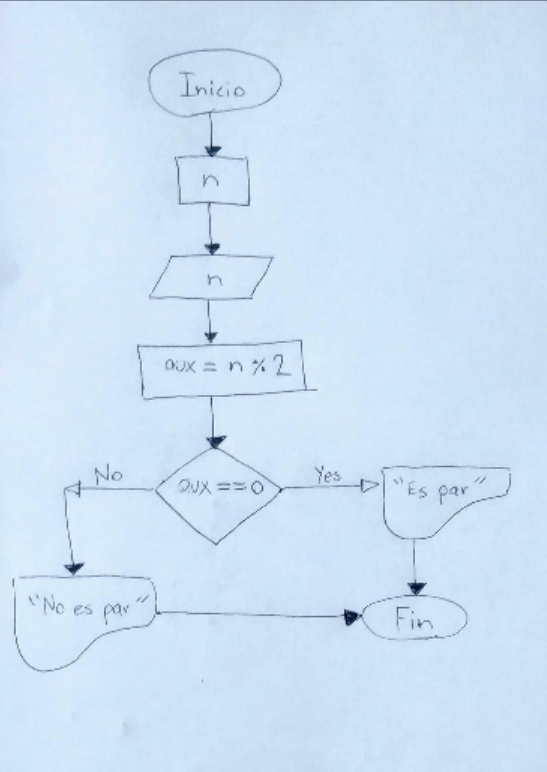 Inicio
n
n
aux = n % 2
aux == 0
No
Yes
"Es par"
"No es par"
Fin